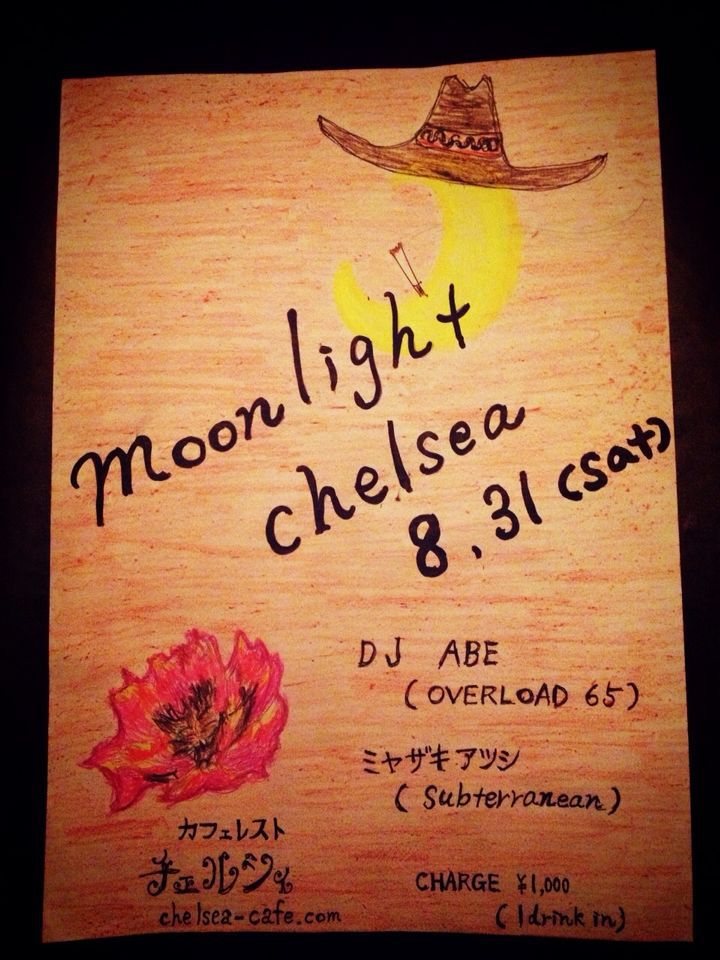 moonlight
chelsea
8.31 (sat)
DJ ABE
(OVERLOAD 65)
ミヤザキアツシ
(Subterranean)
カフェレスト
チェルシィ
chelsea-cafe.com
CHARGE ¥1,000
(1drink in)